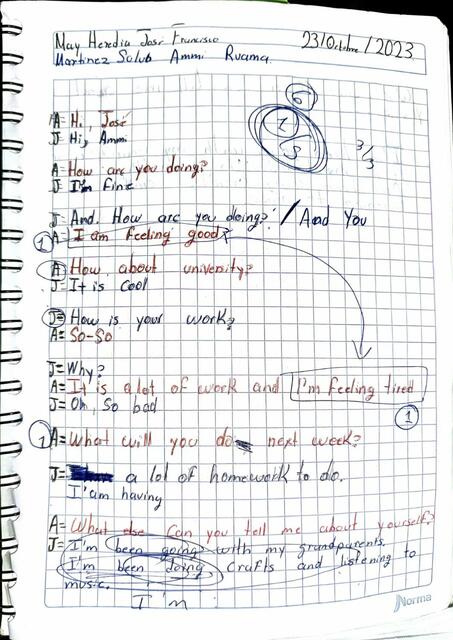 May Heredia José Francisco
23/Octubre/2023
Martinez Solub Ammi Ruama
6
1
3
3/3
A= Hi, José
J= Hi, Ammi
A= How are you doing?
J= I'm Fine
J= And. How are you doing? / And You
1
A= I am feeling good?
A= How about university?
J= It is cool
J= How is your work?
A= So-So
J= Why?
A= It is a lot of work and I'm feeling tired
J= Oh, so bad
1
1
A= What will you do next week?
J= a lot of homework to do.
I'am having
A= What else can you tell me about yourself?
J= I'm been going with my grandparents.
I'm been doing crafts and listening to
music.
I'm
Norma